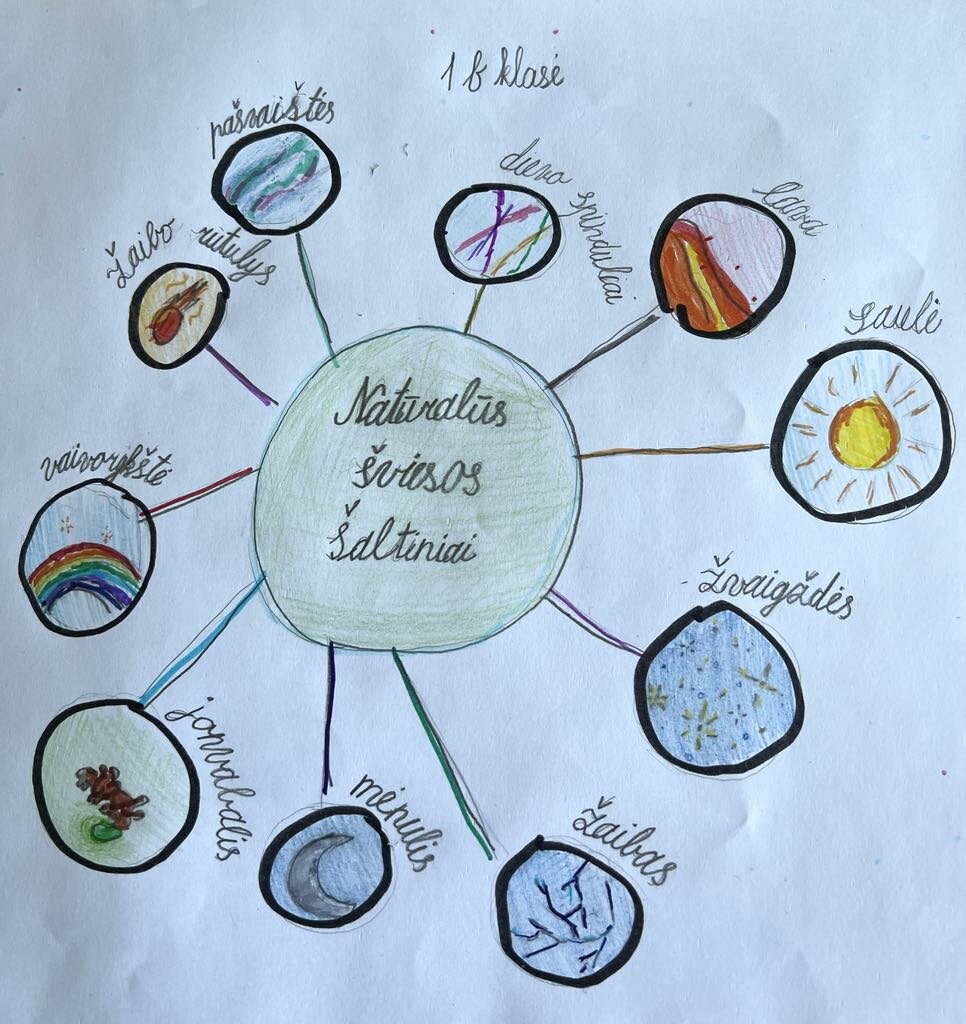 1 b klasė
pašvaistės
dievo spinduliai
lava
žaibo rutulys
saulė
Natūralūs
šviesos
šaltiniai
vaivorykštė
žvaigždės
jonvabalis
mėnulis
žaibas